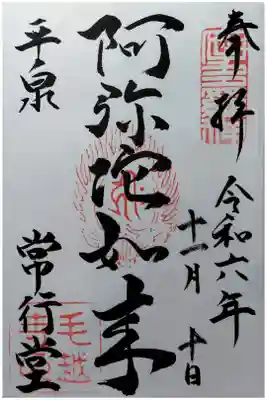 奉拝
令和六年
十一月 十日
阿弥陀如来
平泉
常行堂
毛越